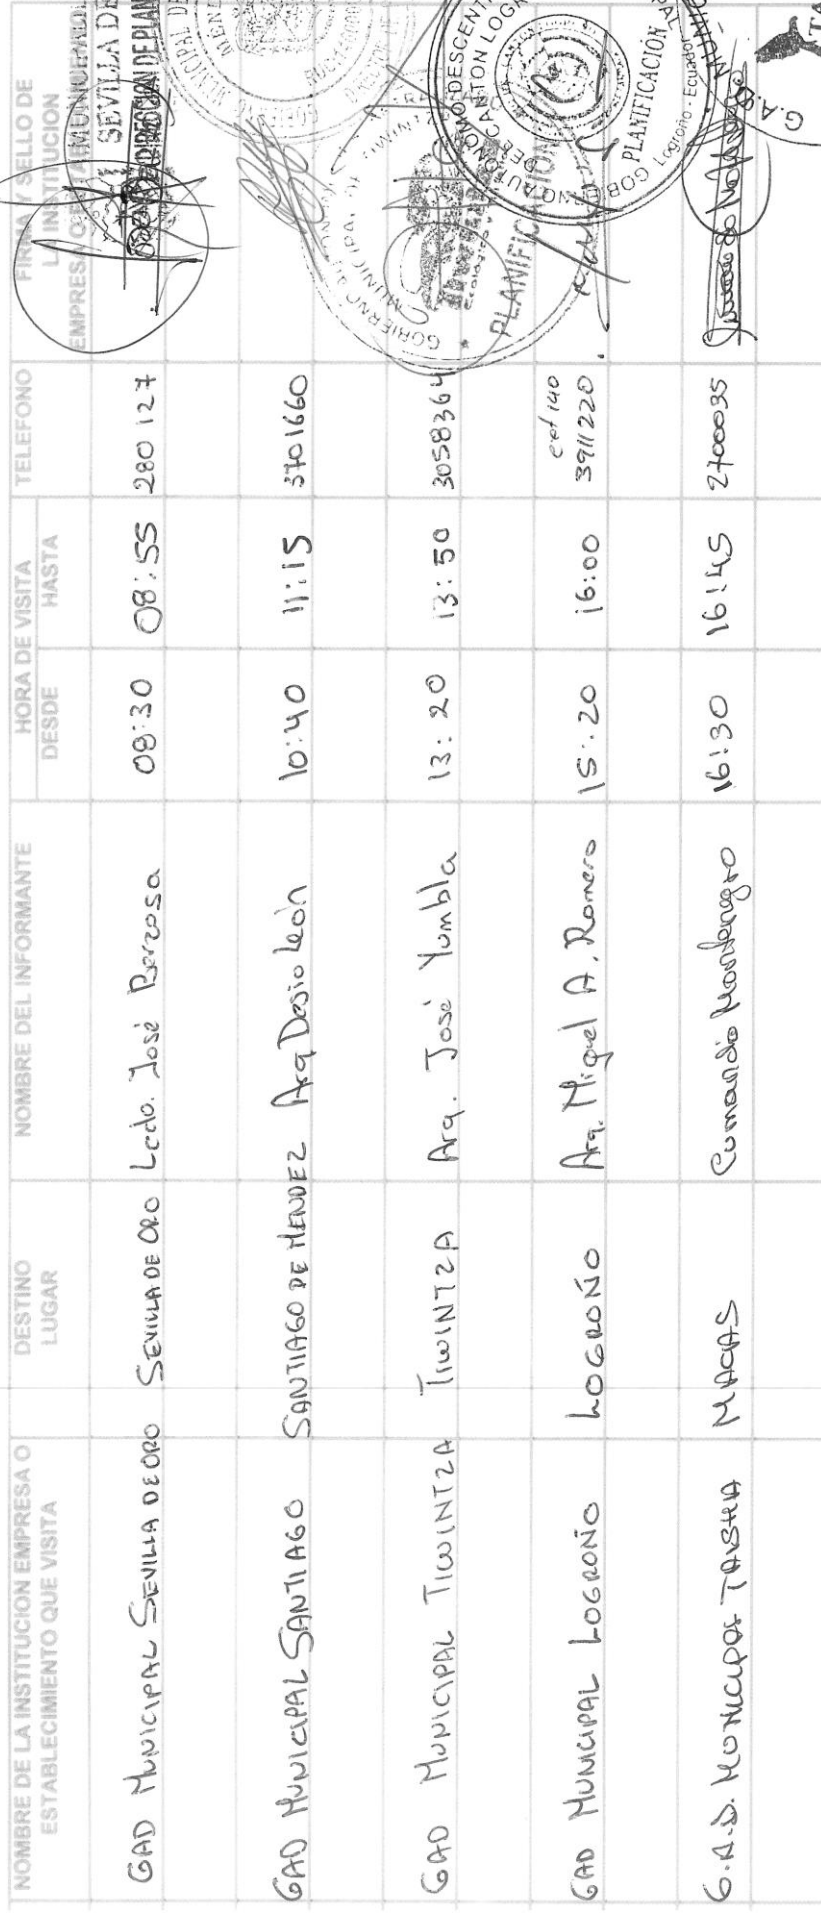 NOMBRE DE LA INSTITUCION EMPRESA O
ESTABLECIMIENTO QUE VISITA
DESTINO
LUGAR
NOMBRE DEL INFORMANTE
HORA DE VISITA
DESDE
HASTA
TELEFONO
FIRMA Y SELLO DE
LA INSTITUCION
GAD MUNICIPAL SEVILLA DE ORO SEVILLA DE ORO Lcdo. José Berzosa 08:30 08:55 280127
SEVILLA DE
GAD MUNICIPAL SANTIAGO SANTIAGO DE MENDEZ Arq Dasio León 10:40 11:15 3701660
GAD MUNICIPAL TIWINTZA TIWINTZA Arq. José Yumbla 13:20 13:50 3058364
PLANIFICACION
GAD MUNICIPAL LOGROÑO LOGROÑO Arq. Miguel A. Romero 15:20 16:00 ext 140
3911220
PLANIFICACION
Logroño - Ecuador
G.A.D. MUNICIPAL TAISHA MACAS Cumandá Montenegro 16:30 16:45 2700035